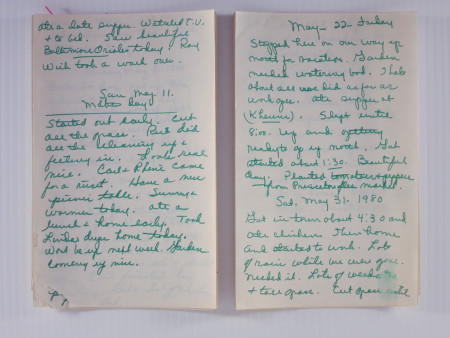 ate a late supper. Watched T.V.
& to bed. Saw beautiful
Baltimore Orioles today. Ray
Wich took a walk over.
Sun. May 11.
Mothers Day
Started out early. Cut
all the grass. Bert did
all the cleaning up &
fixing. Looks real
nice. Carl & Rhine came
for a visit. Have a nice
picnic table. Sunny &
warmer today. ate a
lunch & home early. Took
Lindas dryer home today.
Wont be up next week. Garden
coming up nice.
May 22- Friday
Stopped here on our way up
north for vacation. Garden
needed watering bad. Thats
about all we did as far as
work goes. ate supper at
(Kheims). Slept until
8:00. Up and
ready to go up north. Got
started about 1:30. Beautiful
day. Planted tomatoes & peppers
from Prescotts farm market.
Sat. May 31- 1980
Got in town about 4:30 and
ate chicken. Then home
and started to work. Lots
of rain while we were gone.
Needed it. Lots of weeds
& tall grass. Cut grass